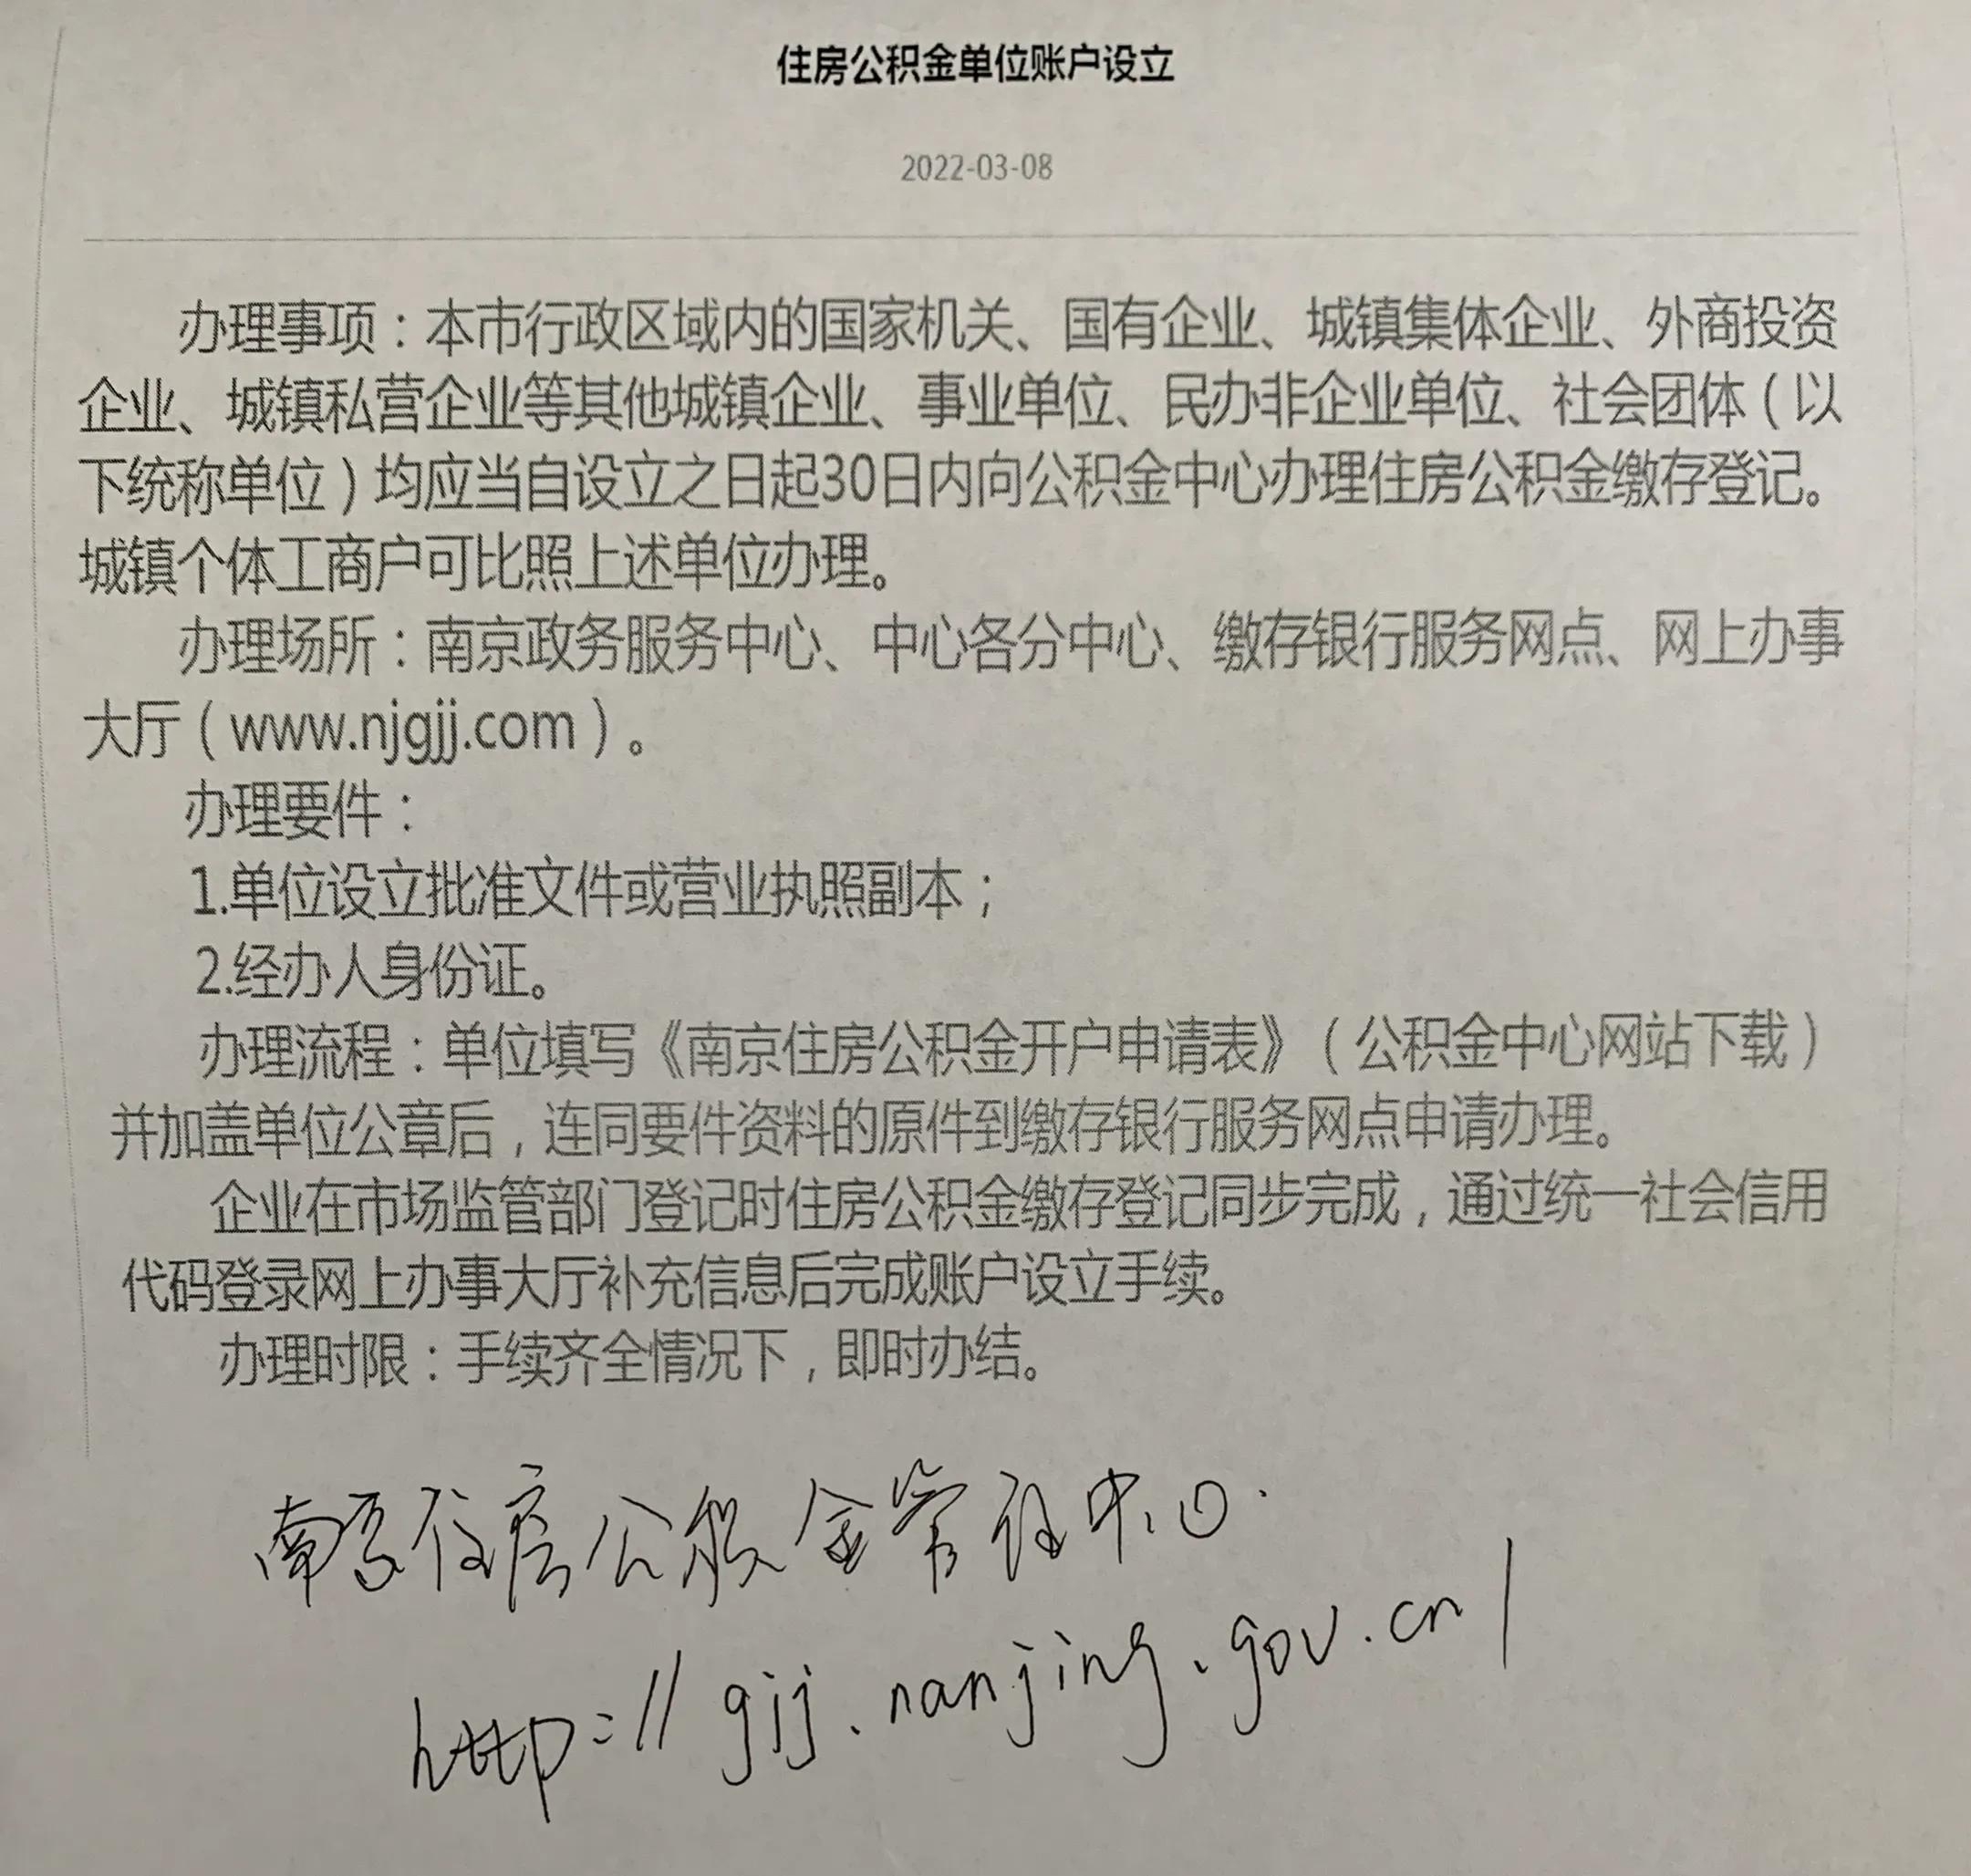 住房公积金单位账户设立
2022-03-08
办理事项：本市行政区域内的国家机关、国有企业、城镇集体企业、外商投资
企业、城镇私营企业等其他城镇企业、事业单位、民办非企业单位、社会团体（以
下统称单位）均应当自设立之日起30日内向公积金中心办理住房公积金缴存登记。
城镇个体工商户可比照上述单位办理。
办理场所：南京政务服务中心、中心各分中心、缴存银行服务网点、网上办事
大厅（www.njgjj.com）。
办理要件：
1.单位设立批准文件或营业执照副本；
2.经办人身份证。
办理流程：单位填写《南京住房公积金开户申请表》（公积金中心网站下载）
并加盖单位公章后，连同要件资料的原件到缴存银行服务网点申请办理。
企业在市场监管部门登记时住房公积金缴存登记同步完成，通过统一社会信用
代码登录网上办事大厅补充信息后完成账户设立手续。
办理时限：手续齐全情况下，即时办结。
南京住房公积金管理中心
http://gjj.nanjing.gov.cn/